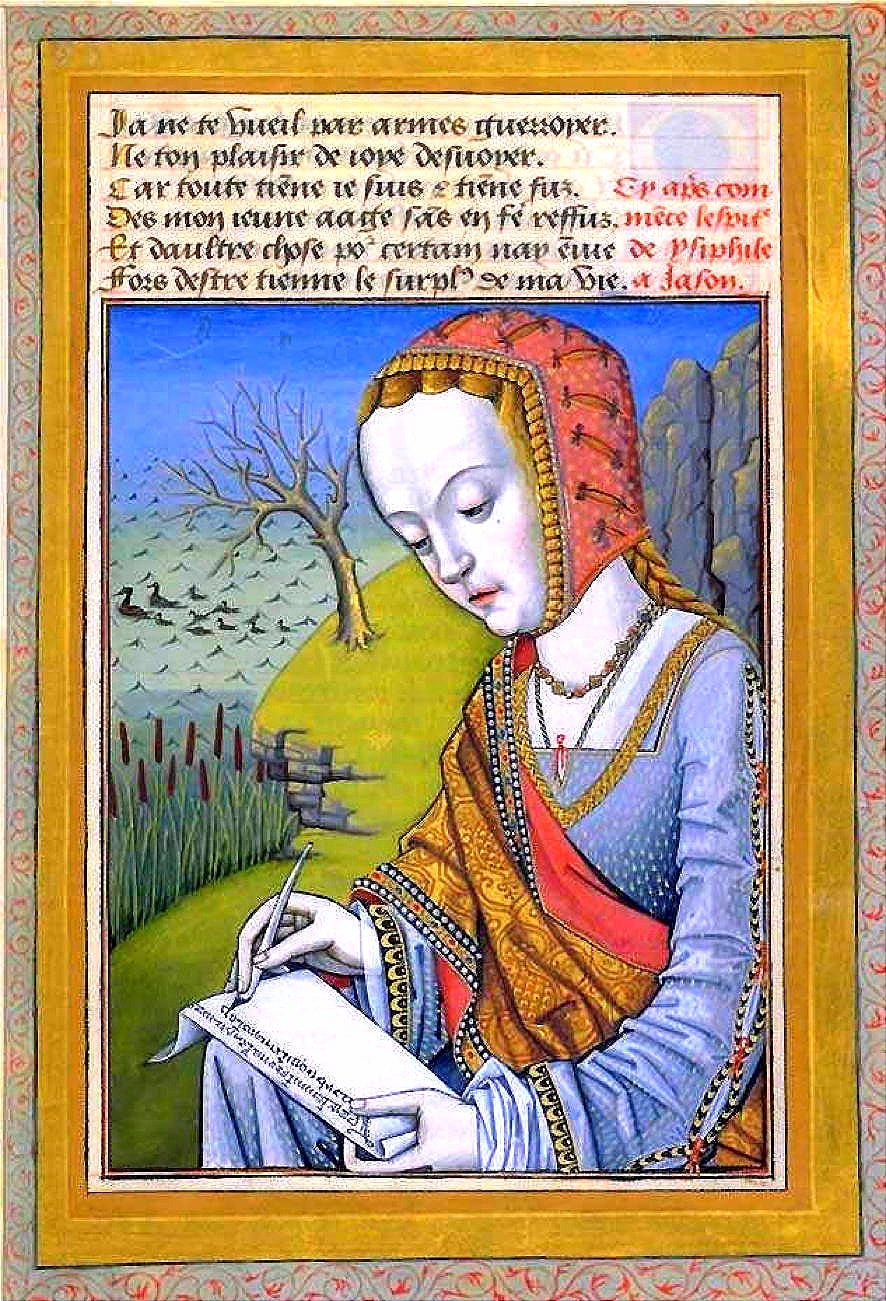 Ja ne te vueil par armes guerroyer.
Ne ton plaisir de ioye desuoyer.
Car toute tiēne ie suis & tiēne fuz.
Des mon ieune aage sās en fē reffuz.
Et daultre chose poᵘ certain nay ēuie
Fors destre tienne le surplᵘˢ de ma vie.
Cy aps com
mēce lespitᵉ
de ysiphile
a Jason.